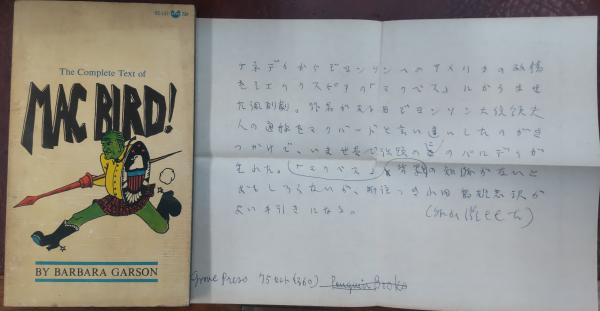 The Complete Text of
MAC BIRD!
BY BARBARA GARSON
ケネディからジョンソンへのアメリカの政情
を「マクベス」にからませ
た諷刺劇。作者がある日ジョンソン大統領夫
人の通称をマクバードと言い違いしたのがき
っかけで、いま世界で話題のパロディが
生れた。「マクベス」の知識がないと
おもしろくないが、小田島雄志訳が
よい手引きになる。
Grove Press 75セント(360) Penguin Books